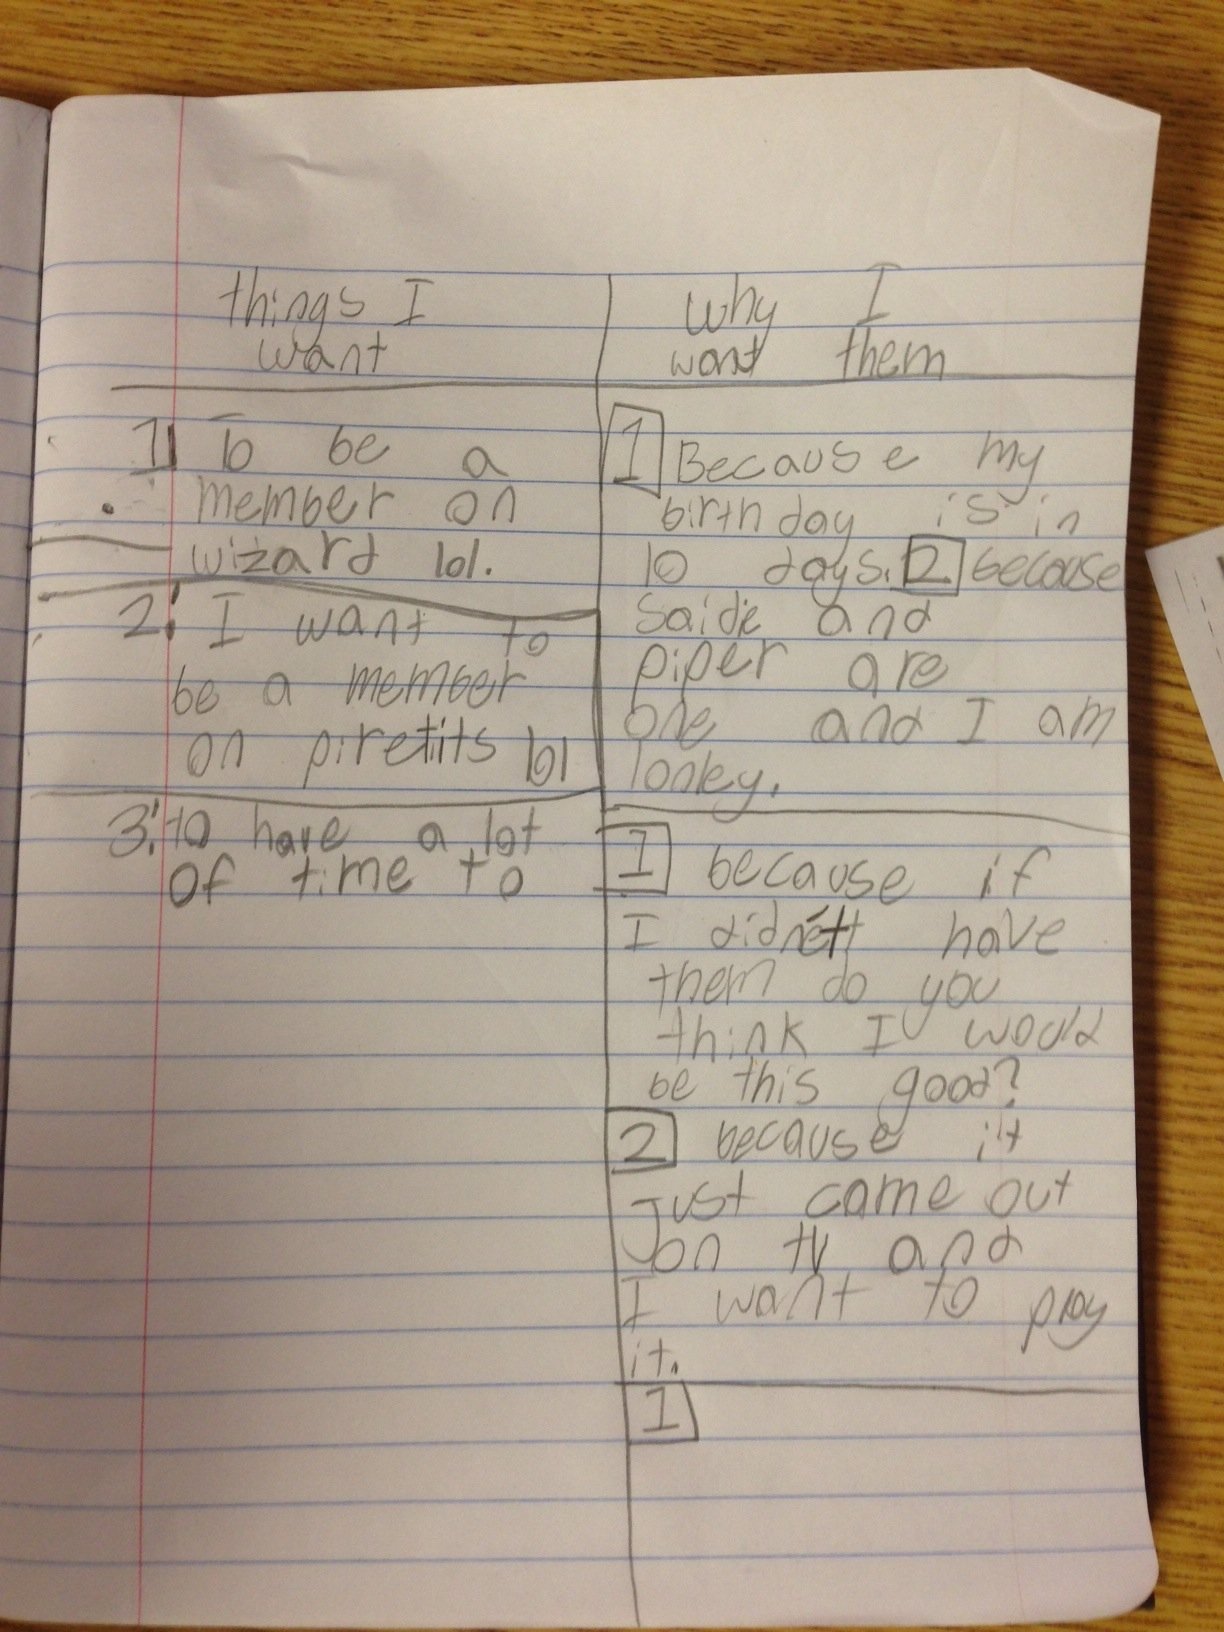 things I
want
1 To be a
member on
wizard lol.
2. I want to
be a member
on piretits lol
3. to have a lot
of time to
why I
want them
1 Because my
birthday is in
10 days. 2 because
Saide and
piper are
one and I am
lonley.
1 because if
I didn't have
them do you
think I would
be this good?
2 because it
just came out
on tv and
I want to play
it.
1